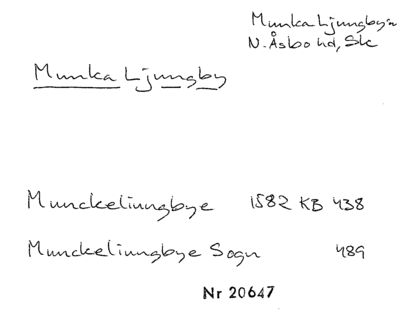 Munka Ljungby sn
N. Åsbo hd, Sk
Munka Ljungby
Munckeliungbye 1582 KB 438
Munckeliungbye Sogn 489
Nr 20647